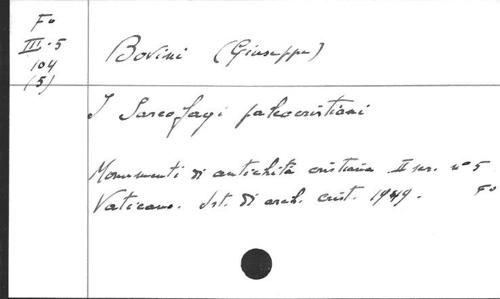 Fo
III-5
104
(5)
Bovini (Giuseppe)
I Sarcofagi paleocristiani
Monumenti di antichità cristiana II ser. n° 5
Vaticano. Ist. di arch. crist. 1949. Fo